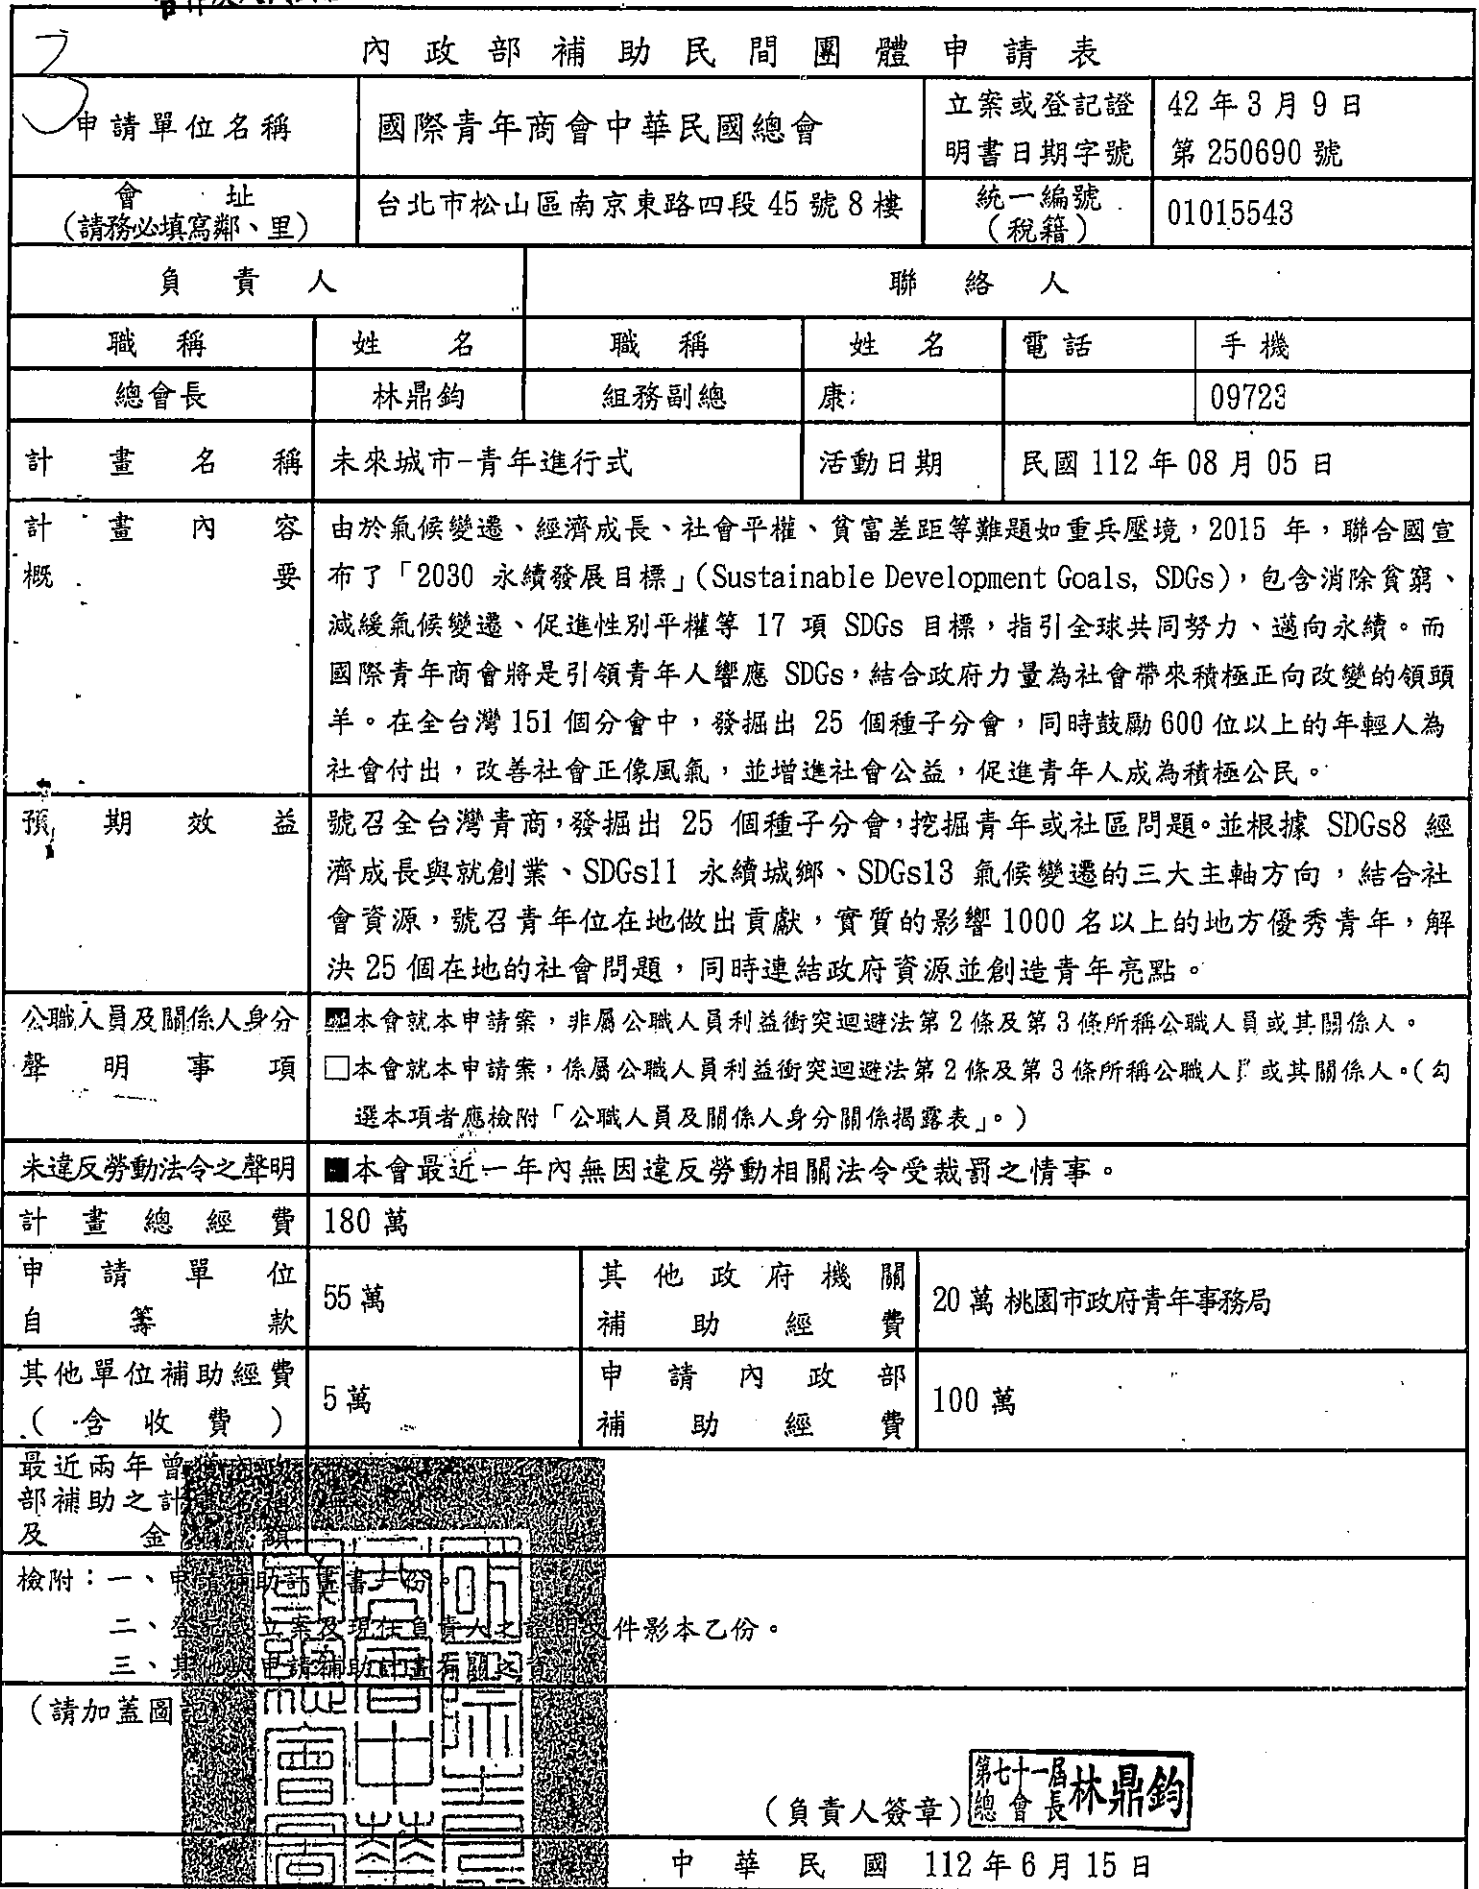 3
內政部補助民間團體申請表
申請單位名稱
國際青年商會中華民國總會
立案或登記證
明書日期字號
42年3月9日
第250690號
會址
(請務必填寫鄰、里)
台北市松山區南京東路四段45號8樓
統一編號
(稅籍)
01015543
負責人
聯絡人
職稱
姓名
職稱
姓名
電話
手機
總會長
林鼎鈞
組務副總
康
09723
計畫名稱
未來城市-青年進行式
活動日期
民國112年08月05日
計畫內容
概要
由於氣候變遷、經濟成長、社會平權、貧富差距等難題如重兵壓境,2015 年,聯合國宣
布了「2030 永續發展目標」(Sustainable Development Goals, SDGs),包含消除貧窮、
減緩氣候變遷、促進性別平權等 17 項 SDGs 目標,指引全球共同努力、邁向永續。而
國際青年商會將是引領青年人響應 SDGs,結合政府力量為社會帶來積極正向改變的領頭
羊。在全台灣151個分會中,發掘出 25 個種子分會,同時鼓勵600位以上的年輕人為
社會付出,改善社會正像風氣,並增進社會公益,促進青年人成為積極公民。
預期效益
號召全台灣青商,發掘出 25 個種子分會,挖掘青年或社區問題。並根據 SDGs8 經
濟成長與就創業、SDGs11 永續城鄉、SDGs13 氣候變遷的三大主軸方向,結合社
會資源,號召青年位在地做出貢獻,實質的影響1000名以上的地方優秀青年,解
決25個在地的社會問題,同時連結政府資源並創造青年亮點。
公職人員及關係人身分
聲明事項
■本會就本申請案,非屬公職人員利益衝突迴避法第2條及第3條所稱公職人員或其關係人。
□本會就本申請案,係屬公職人員利益衝突迴避法第2條及第3條所稱公職人員或其關係人。(勾
選本項者應檢附「公職人員及關係人身分關係揭露表」。)
未違反勞動法令之聲明
■本會最近一年內無因違反勞動相關法令受裁罰之情事。
計畫總經費
180萬
申請單位
自籌款
55萬
其他政府機關
補助經費
20萬 桃園市政府青年事務局
其他單位補助經費
(含收費)
5萬
申請內政部
補助經費
100萬
最近兩年曾
部補助之計
及金額
檢附:一、申請補助計畫書一份。
二、登記或立案及現任負責人之證明文件影本乙份。
三、其他與申請補助計畫有關之資
(請加蓋圖記
(負責人簽章)
第七十一屆
總會長
林鼎鈞
中華民國 112年6月15日